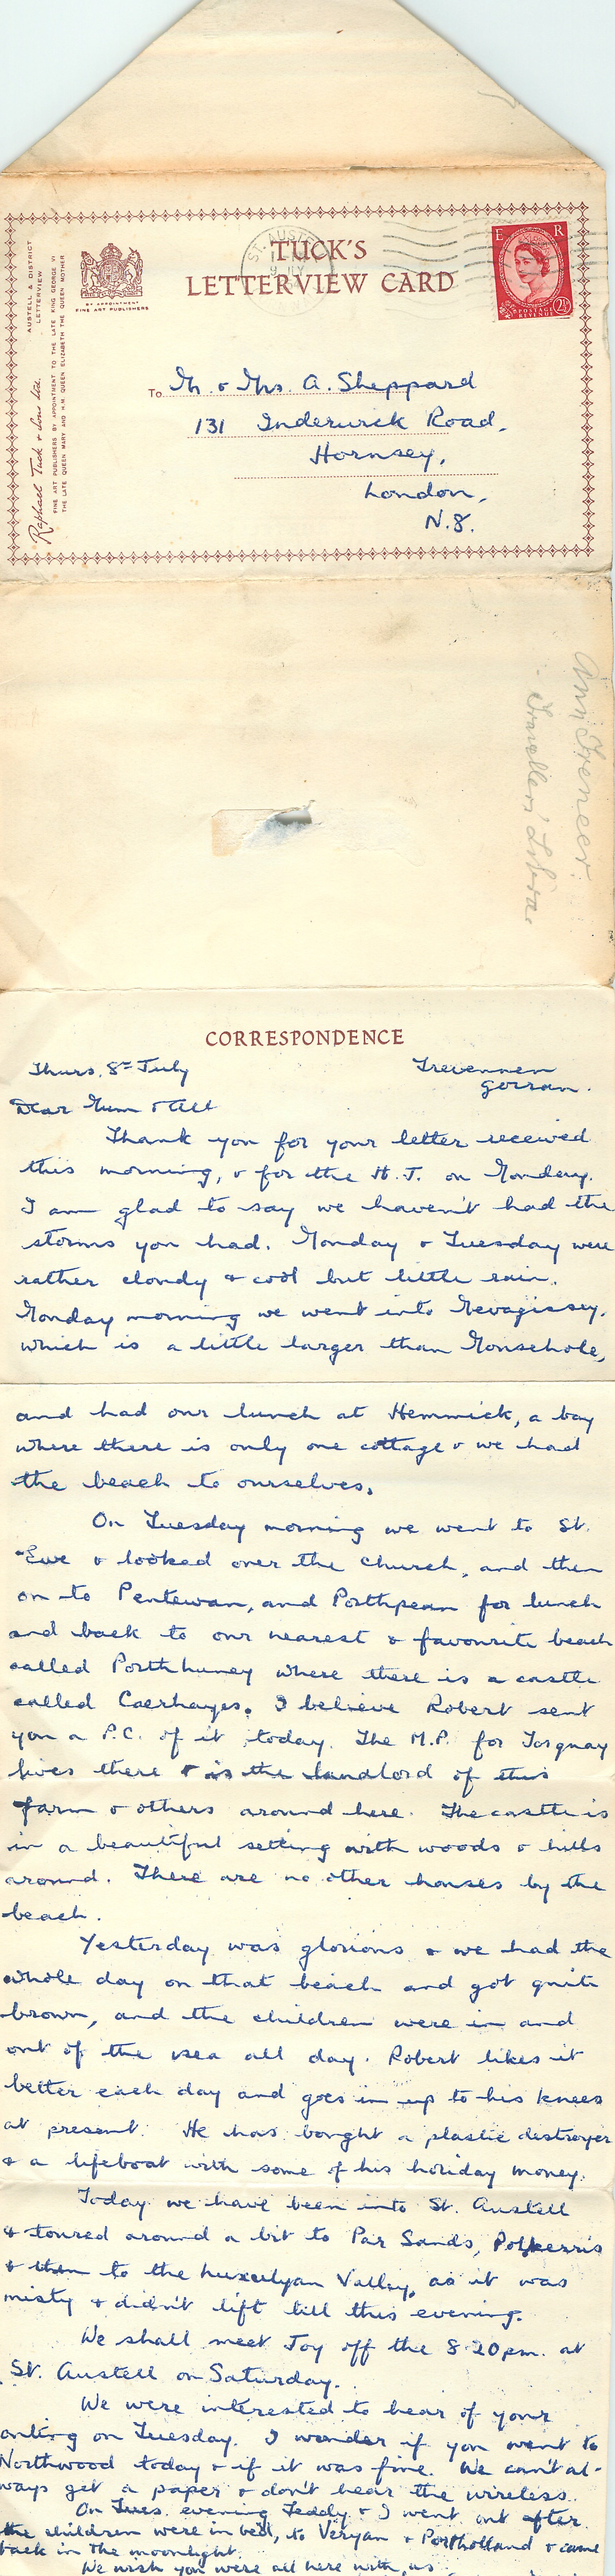 TUCK'S
LETTERVIEW CARD
ST. AUSTE
9 JLY
E R
POSTAGE
REVENUE
2½
BY APPOINTMENT
FINE ART PUBLISHERS
AUSTELL & DISTRICT
LETTERVIEW
Raphael Tuck & Sons Ltd.
FINE ART PUBLISHERS BY APPOINTMENT TO THE LATE KING GEORGE VI
THE LATE QUEEN MARY AND H.M. QUEEN ELIZABETH THE QUEEN MOTHER
To Mr. & Mrs. A. Sheppard
131 Inderwick Road,
Hornsey,
London,
N.8.
Ann Treneer
Travellers' Libra
CORRESPONDENCE
Thurs. 8th July
Trevennen
Gorran.
Dear Mum & All
Thank you for your letter received
this morning, & for the H.J. on Monday.
I am glad to say we haven't had the
storms you had. Monday & Tuesday were
rather cloudy & cool but little rain.
Monday morning we went into Mevagissey,
which is a little larger than Mousehole,
and had our lunch at Hemmick, a bay
where there is only one cottage & we had
the beach to ourselves.
On Tuesday morning we went to St.
Ewe & looked over the church, and then
on to Pentewan, and Porthpean for lunch
and back to our nearest & favourite beach
called Porthluney where there is a castle
called Caerhayes. I believe Robert sent
you a P.C. of it today. The M.P. for Torquay
lives there & is the landlord of this
farm & others around here. The castle is
in a beautiful setting with woods & hills
around. There are no other houses by the
beach.
Yesterday was glorious & we had the
whole day on that beach and got quite
brown, and the children were in and
out of the sea all day. Robert likes it
better each day and goes in up to his knees
at present. He has bought a plastic destroyer
& a lifeboat with some of his holiday money.
Today we have been into St. Austell
& toured around a bit to Par Sands, Polkerris
& then to the Luxulyan Valley, as it was
misty & didn't lift till this evening.
We shall meet Joy off the 8.20pm. at
St. Austell on Saturday.
We were interested to hear of your
outing on Tuesday. I wonder if you went to
Northwood today & if it was fine. We can't al-
ways get a paper & don't hear the wireless.
On Tues. evening Teddy & I went out after
the children were in bed, to Veryan & Portholland & came
back in the moonlight.
We wish you were all here with us